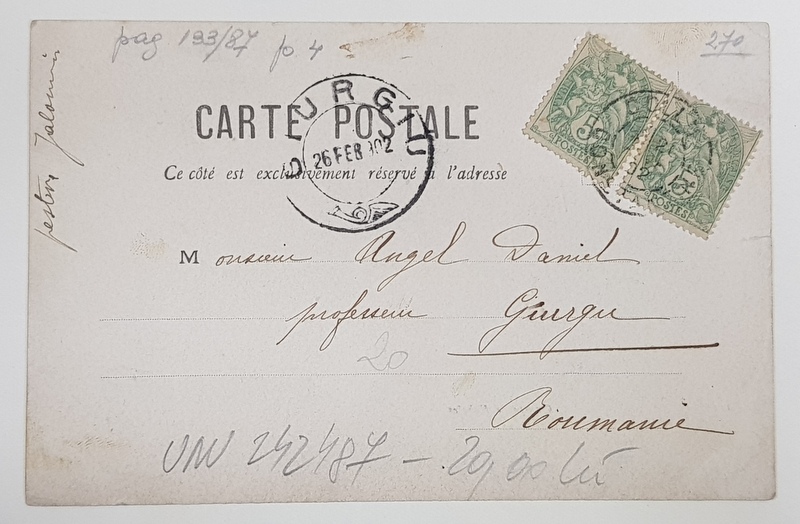 pag 193/87 p. 4
270
CARTE POSTALE
GIURGIU
26 FEB 902
Ce côté est exclusivement réservé à l'adresse
5
POSTES
5
POSTES
Monsieur Angel Daniel
professeur Giurgu
20
Roumanie
242487 – 20,00 lei